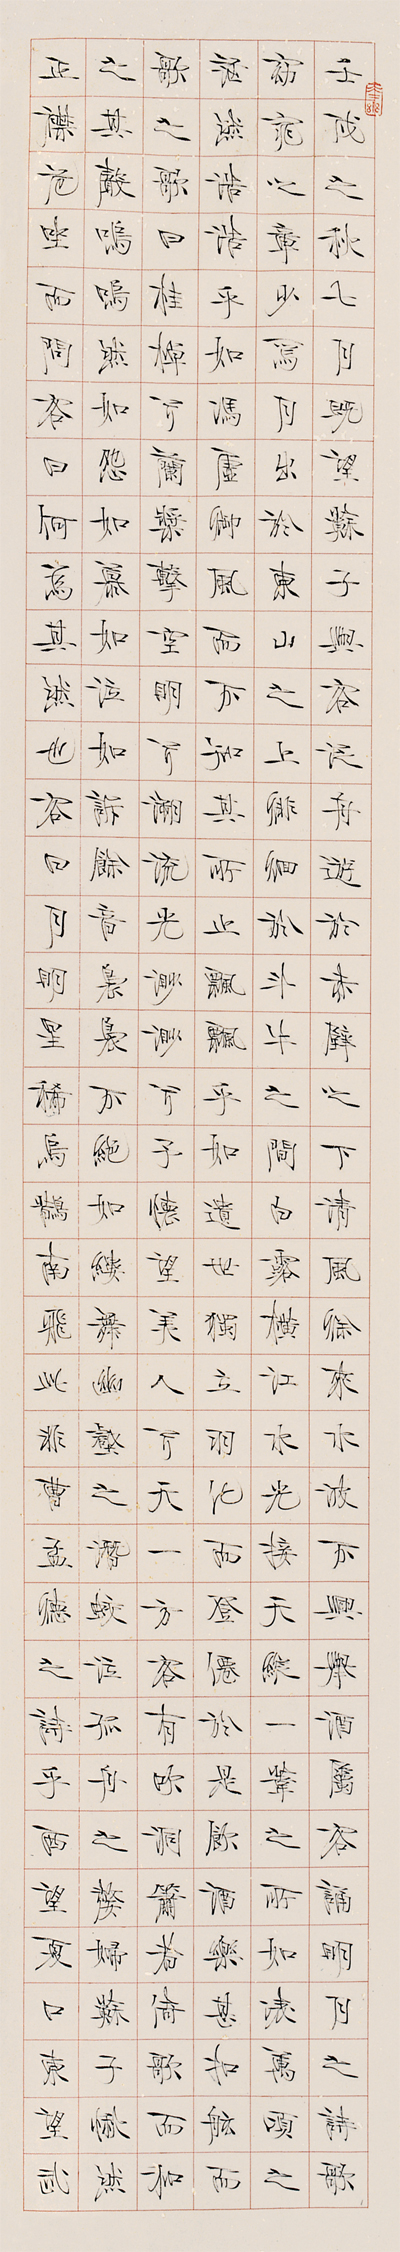 壬戌之秋七月既望蘇子與客泛舟遊於赤壁之下清風徐來水波不興舉酒屬客誦明月之詩歌
窈窕之章少焉月出於東山之上徘徊於斗牛之間白露橫江水光接天縱一葦之所如凌萬頃之
茫然浩浩乎如馮虛御風而不知其所止飄飄乎如遺世獨立羽化而登僊於是飲酒樂甚扣舷而
歌之歌曰桂棹兮蘭槳擊空明兮泝流光渺渺兮予懷望美人兮天一方客有吹洞簫者倚歌而和
之其聲嗚嗚然如怨如慕如泣如訴餘音裊裊不絕如縷舞幽壑之潛蛟泣孤舟之嫠婦蘇子愀然
正襟危坐而問客曰何為其然也客曰月明星稀烏鵲南飛此非曹孟德之詩乎西望夏口東望武